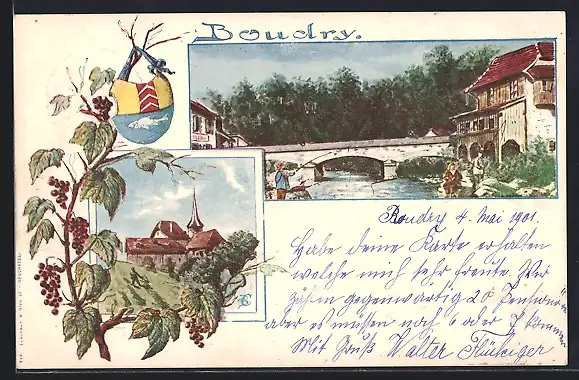 Boudry.
Boudry 4. Mai 1901.
Habe deine Karte erhalten
welche mich sehr freute. Wir
zählen gegenwärtig 20 Pensionär
aber es müssen noch 6 oder 7 kommen
Mit Gruß Walter Flückiger